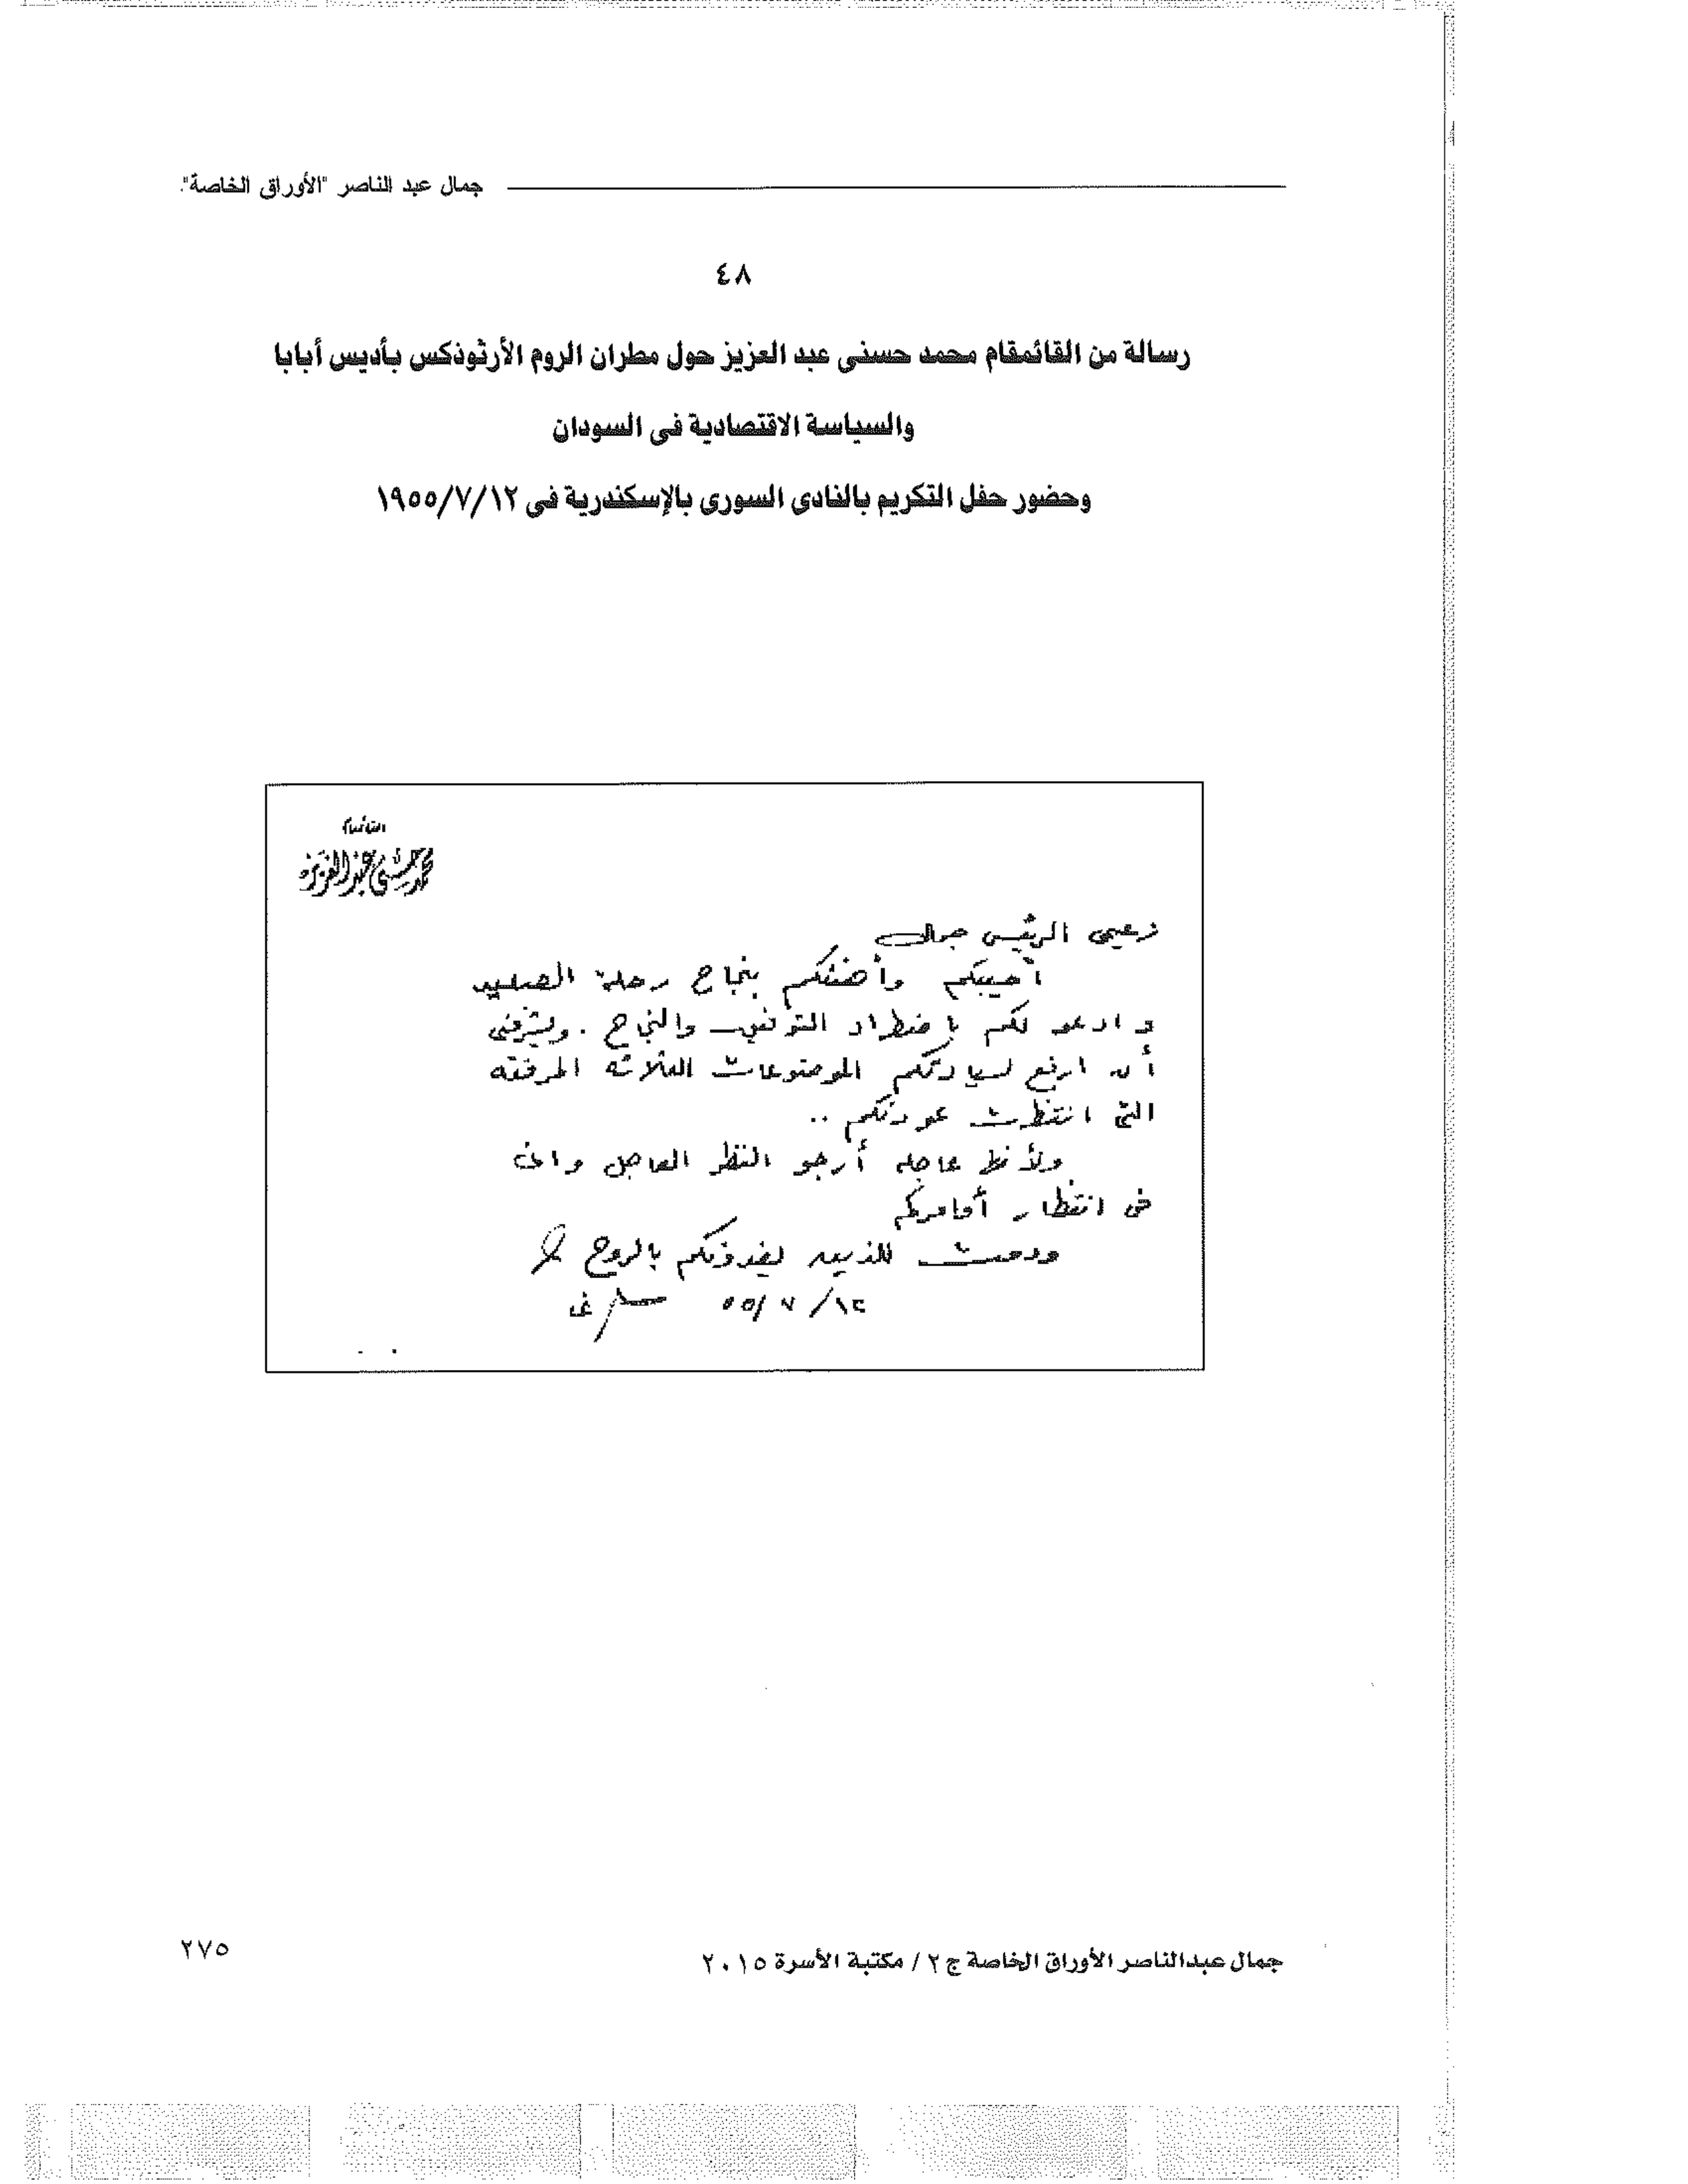 جمال عبد الناصر "الأوراق الخاصة".
٤٨
رسالة من القائمقام محمد حسنى عبد العزيز حول مطران الروم الأرثوذكس بأديس أبابا
والسياسة الاقتصادية فى السودان
وحضور حفل التكريم بالنادى السورى بالإسكندرية فى ١٩٥٥/٧/١٢
القائمقام
محمد حسنى عبد العزيز
زعيمى الرئيس جمال
أحييكم وأهنئكم بنجاح رحلة الصعيد
وادعو لكم باضطراد التوفيق والنجاح . ويشرفنى
أن ارفع لسيادتكم الموضوعات الثلاثه المرفقه
التى انتظرت عودتكم ..
ولأنها عاجله أرجو النظر العاجل وانى
فى انتظار أوامركم
ودمت للذين يفدونكم بالروح
١٢/ ٧ /٥٥
جمال عبدالناصر الأوراق الخاصة ج ٢ / مكتبة الأسرة ٢٠١٥
٢٧٥